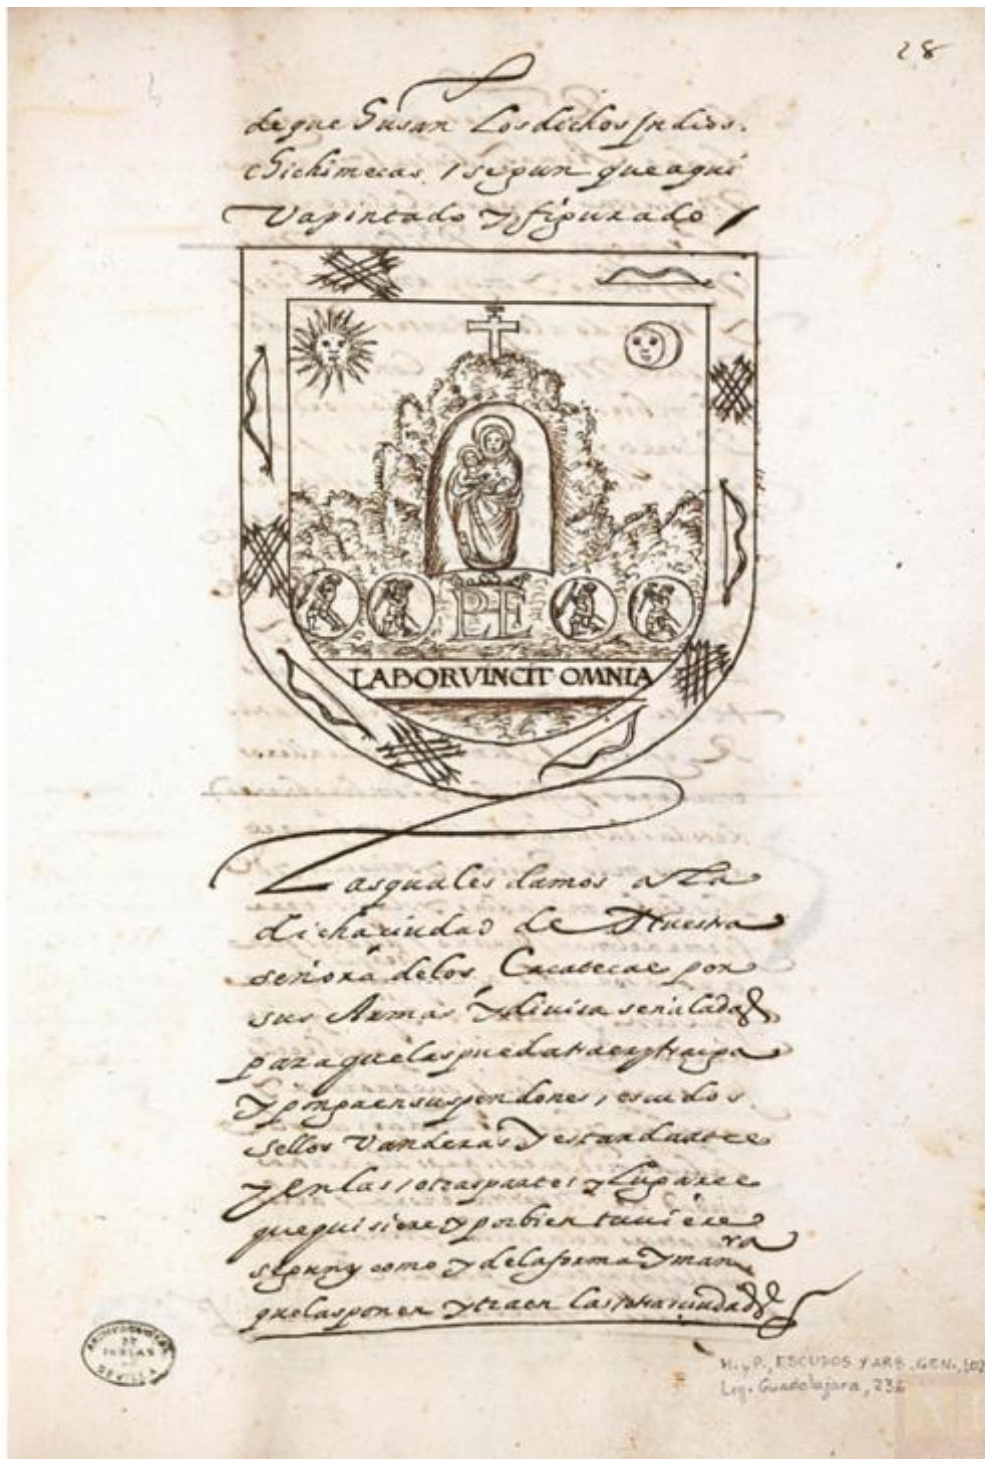 28
de que Husan Los dichos Indios.
Chichimecas, segun que aqui
va pintado y figurado
PE
LABOR VINCIT OMNIA
Las quales damos a la
dicha ciudad de Nuestra
señora de los Cacatecas por
sus Armas y divisa señaladas
para que las pueda traer y traiga
y ponga en sus pendones, escudos
sellos vanderas y estandartes
y en las otras partes y lugares
que quisiere y por bien tuviere
segun y como y de la forma y manera
que las ponen y traen las otras ciudades
ARCHIVO GENERAL
DE
INDIAS
SEVILLA
M. y P., ESCUDOS Y ARB. GEN., 102
Leg. Guadalajara, 236